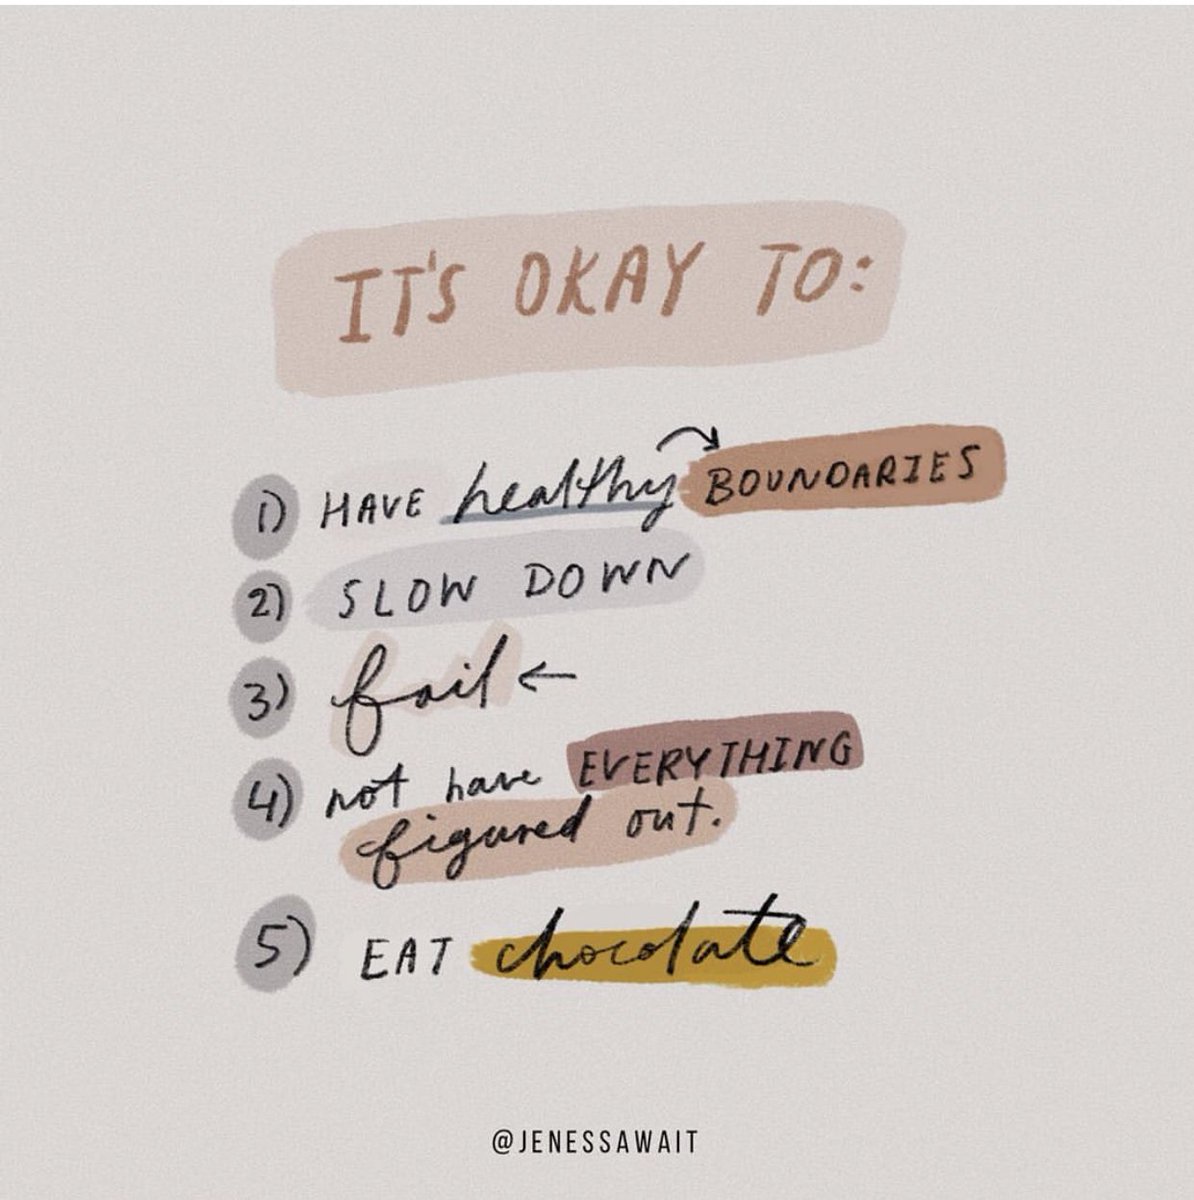 IT'S OKAY TO:
1) HAVE healthy BOUNDARIES
2) SLOW DOWN
3) fail
4) not have EVERYTHING
figured out.
5) EAT chocolate
@JENESSAWAIT